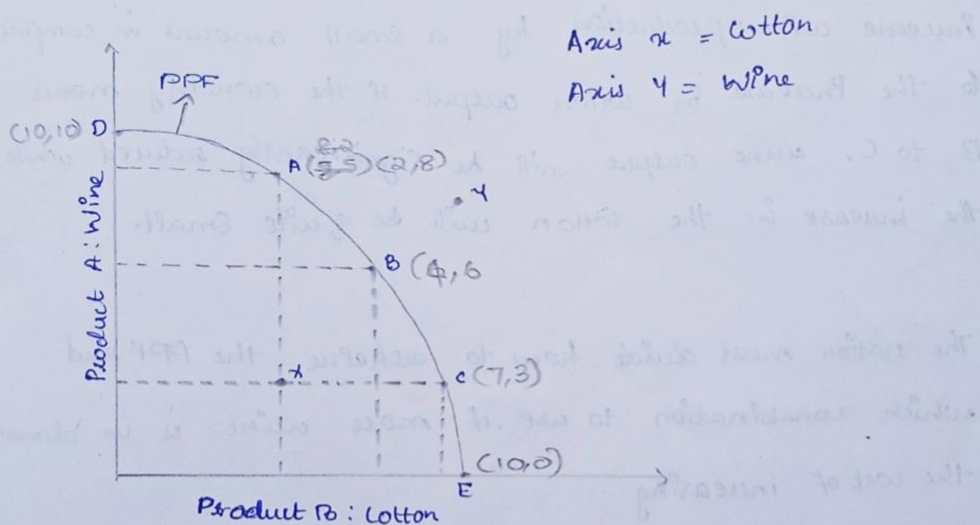 Axis x = Cotton
Axis Y = Wine
PPF
(10,10) D
A (2,8)
Y
B (4,6
X
C (7,3)
(10,0)
E
Product A: Wine
Product B: Cotton